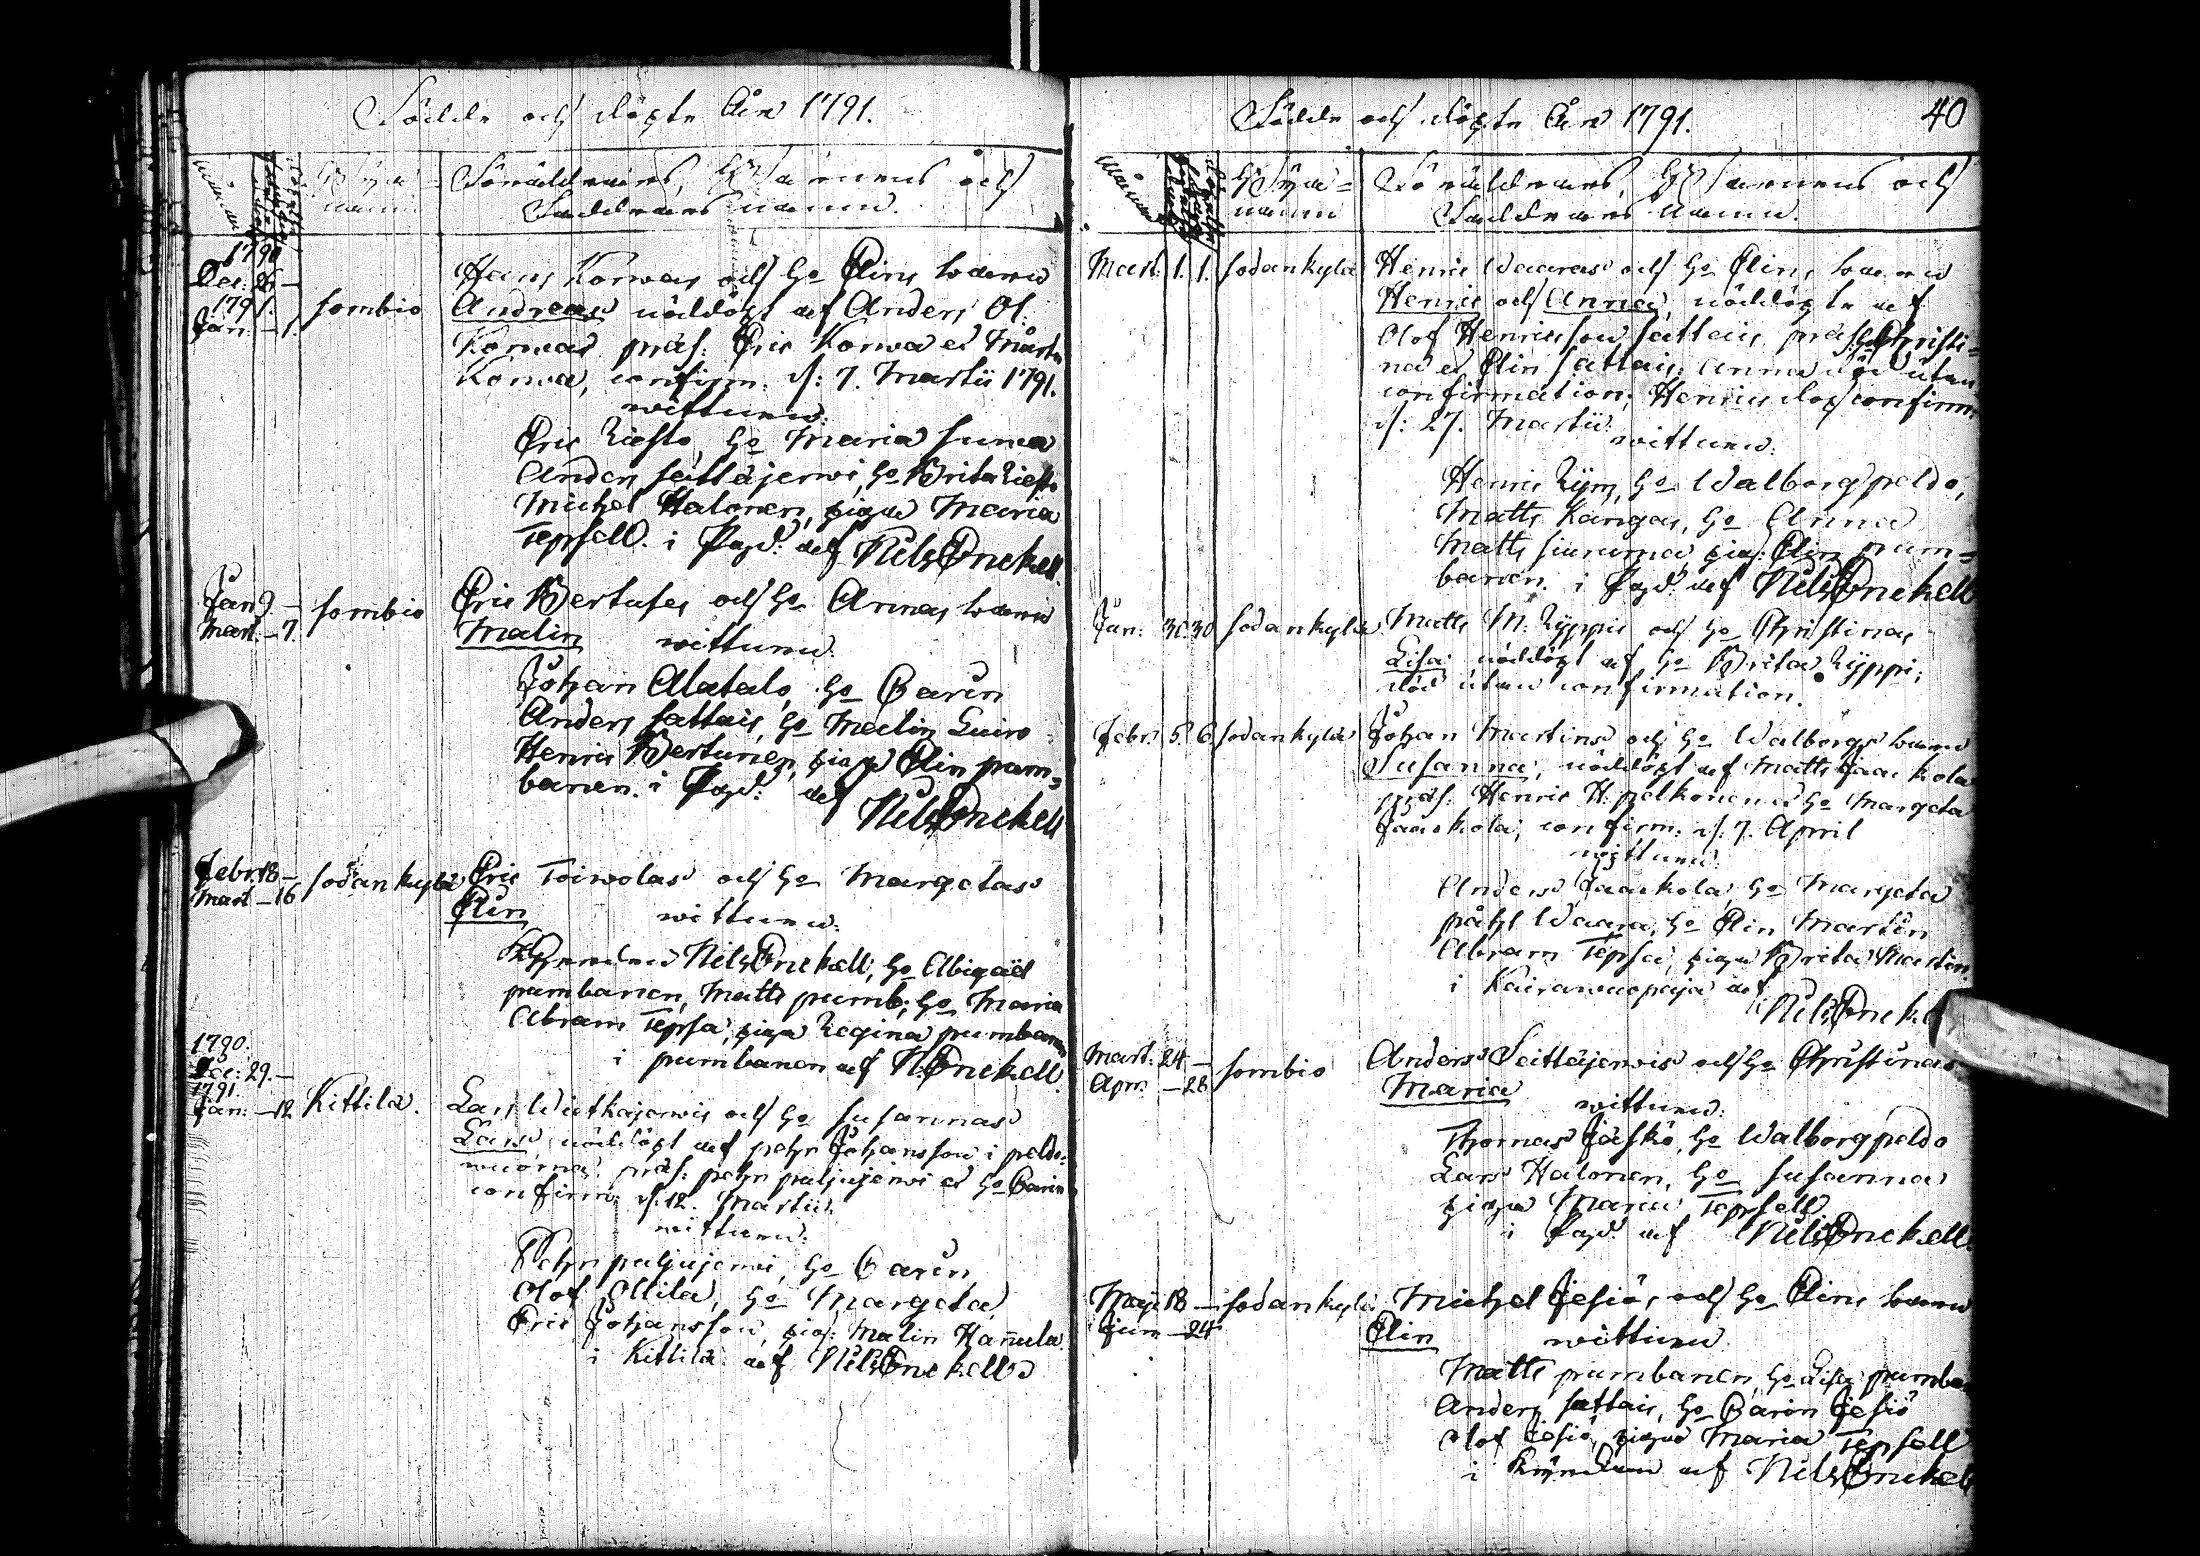 Födde och döpte Åhr 1791.
Månader
By
namn
Föräldrarnes, Barnens och
Faddrarnes namn.
1790
Dec: 26 —
1791.
Jan: — 1.
Sombio
Hans Korwas och H:o Elins barn
Andreas nöddöpt af Anders Ol:
Korwas præs: Eric Korwa et Mårten
Korwa, confirm: d: 7. Martii 1791.
wittnen:
Eric Riesto, H:o Maria
Anders Seittajerwi, H:o Brita Riesto
Michel Halonen, piga Maria
Tepsell. i Pagd: af Nils Enckell.
Jan: 9. —
Mart. — 7.
Sombio
Eric Hertuses och H:o Annas barn
Malin
wittnen:
Johan Alatalo, H:o Carin
Anders Sattais, H:o Malin Luiro
Henric Hertunen, piga Elin pum=
banen. i Pagd: af
Nils Enckell
Febr: 18 —
Mart — 16
Sodankylä
Eric Toiwolas och H:o Margetas
Elin
wittnen:
Nils Enckell, H:o Abigaël
pumbanen, Matts pumb: H:o Maria
Abram Tepsa, piga Regina pumbanen
i pumbanen af N. Enckell
1790.
Dec: 29. —
1791
Jan: — 12
Kittilä.
Lars Wutkajerwis och H:o Susannas
Lars, nöddöpt af pehr Johansson i peldo=
wuoma, præs: pehr puljujerwi et H:o Carin
confirm: d: 12. Martii.
wittnen:
Pehr puljujerwi, H:o Carin,
Olof Ollila, H:o Margeta,
Eric Johansson, pig: Malin Hannula
i Kittilä af Nils Enckell
Födde och döpte Åhr 1791.
40
Månader
By=
namn
Föräldrarnes, Barnens och
Faddrarnes namn.
Mart: 1. 1. Sodankylä
Henric Waaras och H:o Elins barn
Henric och Anna, nöddöpte af
Olof Henricsson Sattais, præs: H:o Christi=
na et Elin Sattais: Anna död utan
confirmation; Henric dog confirm:
d: 27. Martii
wittnen:
Henric Kyrö, H:o Walborg peldo,
Matts Kangas, H:o Anna
Matts Siurumaa, pig: Elin pum=
banen. i Pagd: af Nils Enckell
Jan: 30 30 Sodankylä
Matts M. Kyppis och H:o Christinas
Lisa nöddöpt af H:o Brita Kyppi;
död utan confirmation.
Febr: 5. 6. Sodankylä
Johan Martins och H:o Walborgs barn
Susanna, nöddöpt af Matts Jaaskola
præs: Henric H: pelkonen et H:o Margeta
Jaaskola, confirm: d: 7. April
wittnen:
Anders Jaaskola, H:o Margeta
påhl Waara, H:o Elin Martin
Abram Tepsa, piga Brita Martin
i Kairawuopaja af
Nils Enckell
Mart: 24 —
Apr: — 28
Sombio
Anders Seittajerwis och H:o Christinas
Maria
wittnen:
Thomas Jäskö, H:o Walborg peldo
Lars Halonen, H:o Susanna
piga Maria Tepsell
i Pagd: af Nils Enckell
Maji 18 — Sodankylä
Jun — 24
Michel Jesiös och H:o Elins barn
Elin
wittnen
Matts pumbanen, H:o Lisa pumba
Anders Sattais, H:o Carin Jesiö
Olof Jesiö, piga Maria Tepsell
i af Nils Enckell